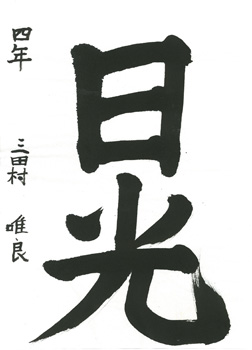 日光
四年 三田村 唯良